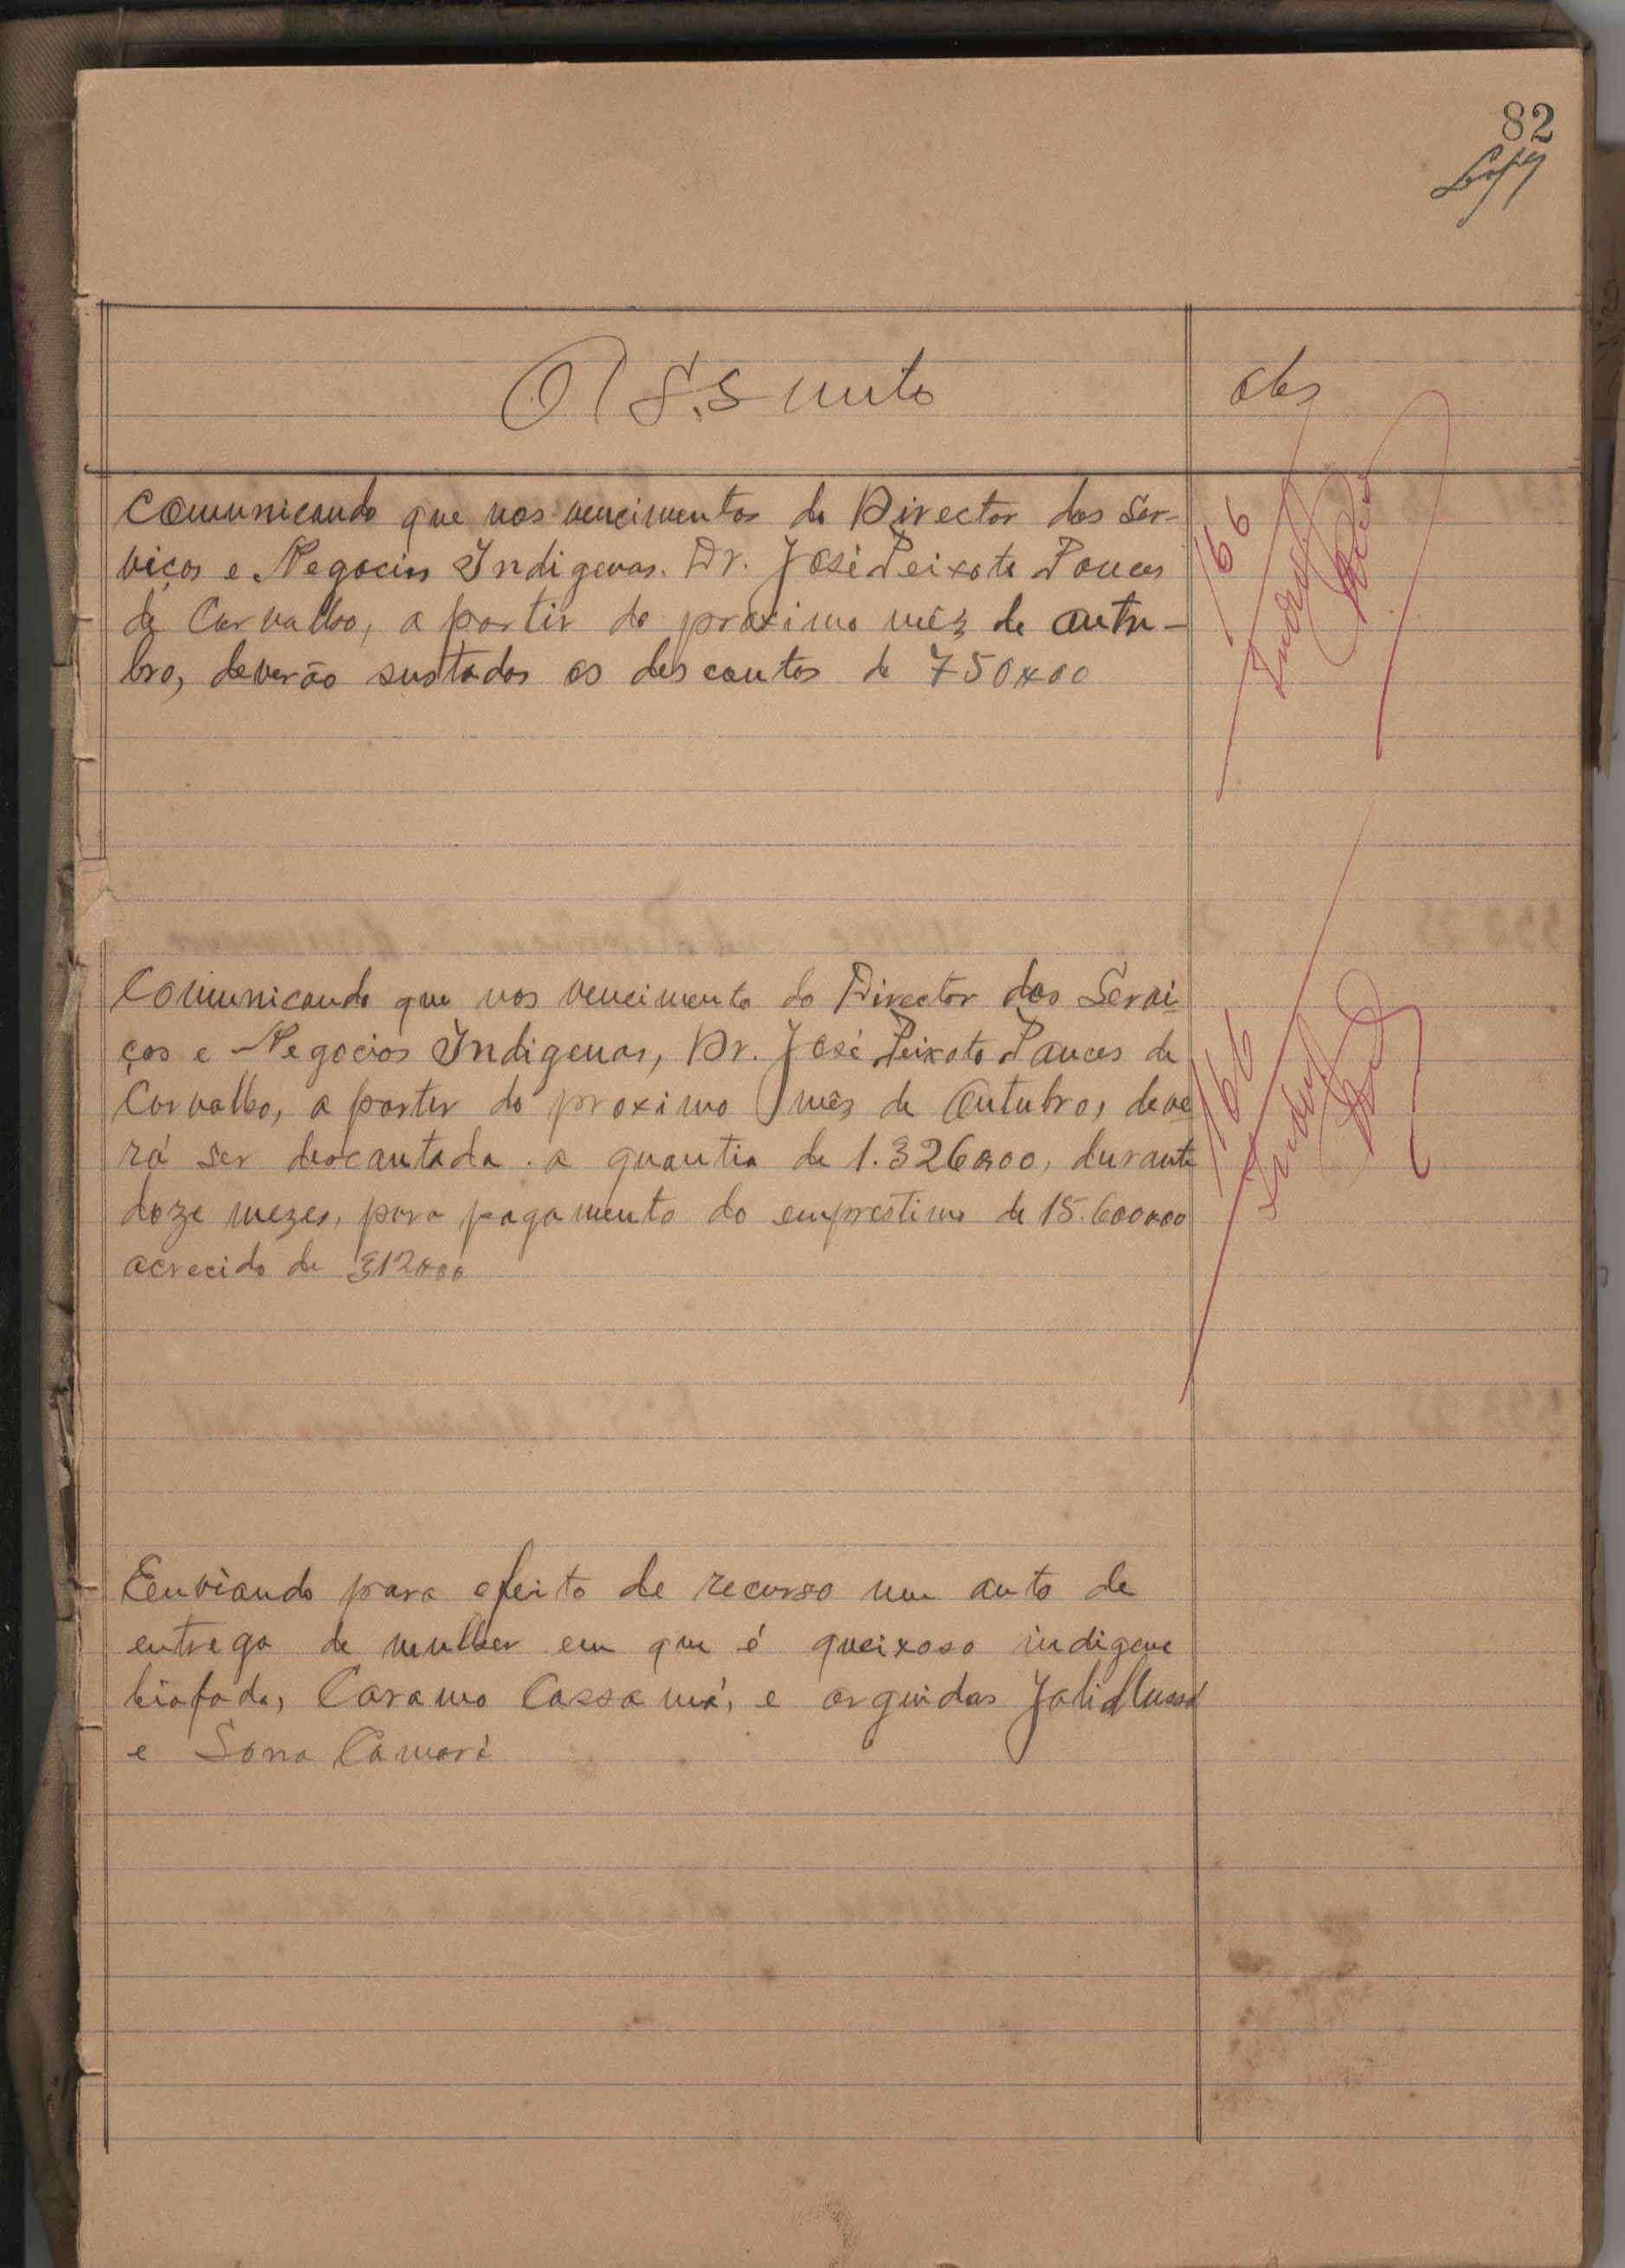 82
Assunto
obs
Comunicando que nos vencimentos do Director dos Ser-
viços e Negocios Indigenas. Dr. José Peixoto Ponces
de Carvalho, a partir do proximo mêz de outu-
bro, deverão sustados os descontos de 750x00
166
Comunicando que nos vencimento do Director dos Servi
ços e Negocios Indigenas, Dr. José Peixoto Ponces de
Carvalho, a partir do proximo mêz de Outubro, deve
rá ser descontada . a quantia de 1.326x00, durante
doze mezes, para pagamento do emprestimo de 15.600x00
acrecido de 312x00
166
Eenviando para efeito de recurso um auto de
entrega de mulher em que é queixoso indigena
biafada, Caramo Cassamá, e arguidos Jali
e Sona Camará